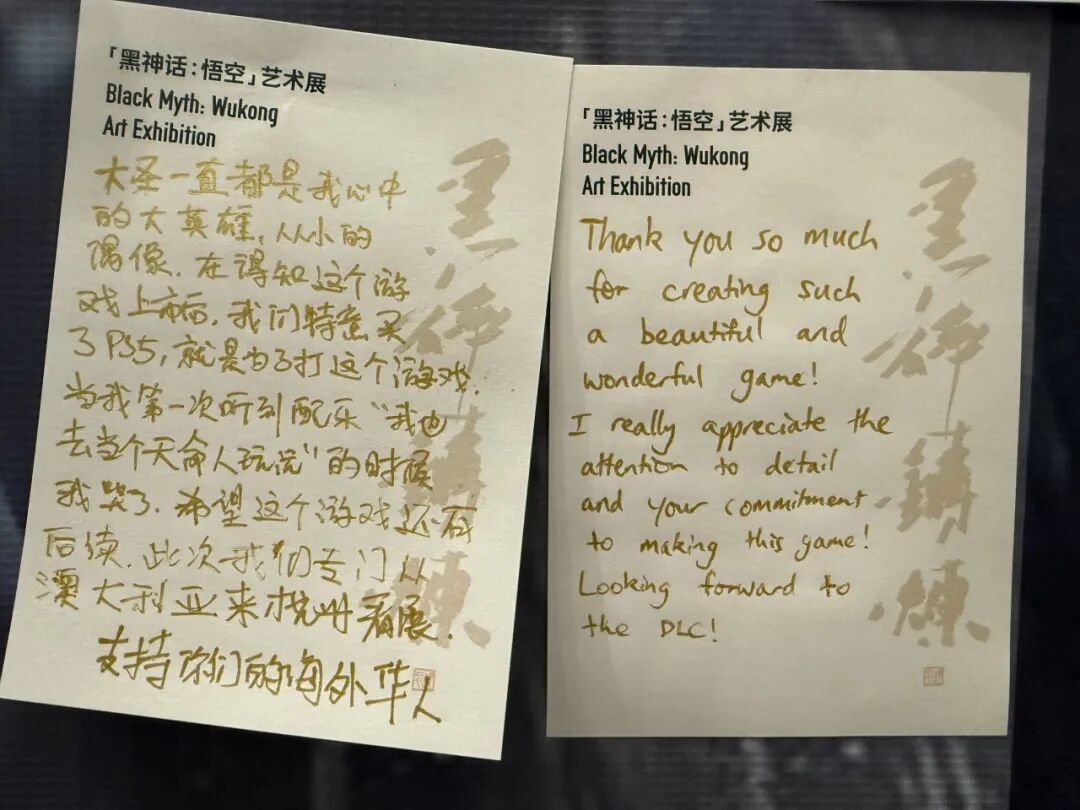 「黑神话:悟空」艺术展
Black Myth: Wukong
Art Exhibition
大圣一直都是我心中
的大英雄,从小的
偶像.在得知这个游
戏上市后,我们特意买
了PS5,就是为了打这个游戏.
当我第一次听到配乐“我也
去当个天命人玩说”的时候
我哭了.希望这个游戏还有
后续.此次我们专门从
澳大利亚来杭州看展.
支持你们的海外华人
「黑神话:悟空」艺术展
Black Myth: Wukong
Art Exhibition
Thank you so much
for creating such
a beautiful and
wonderful game!
I really appreciate the
attention to detail
and your commitment
to making this game!
Looking forward to
the DLC!